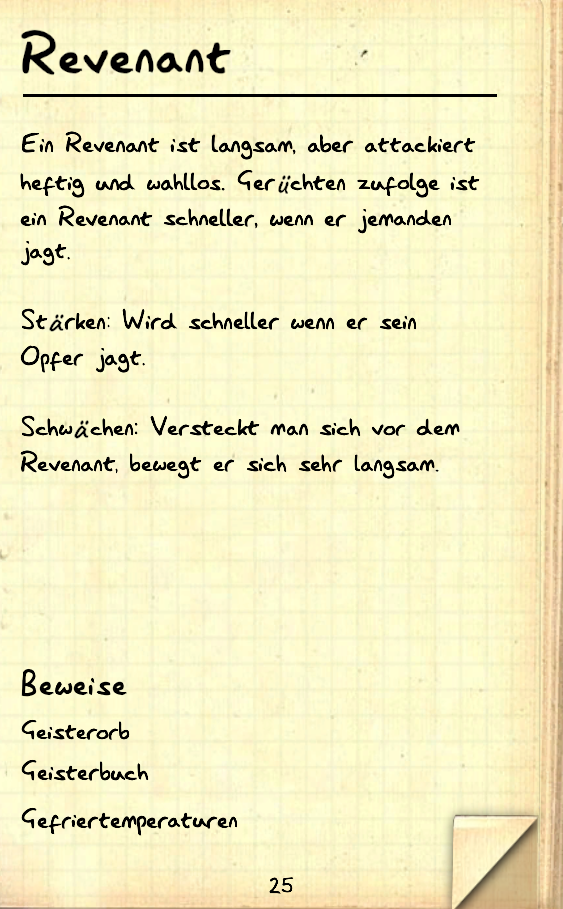 Revenant
Ein Revenant ist langsam, aber attackiert
heftig und wahllos. Gerüchten zufolge ist
ein Revenant schneller, wenn er jemanden
jagt.
Stärken: Wird schneller wenn er sein
Opfer jagt.
Schwächen: Versteckt man sich vor dem
Revenant, bewegt er sich sehr langsam.
Beweise
Geisterorb
Geisterbuch
Gefriertemperaturen
25